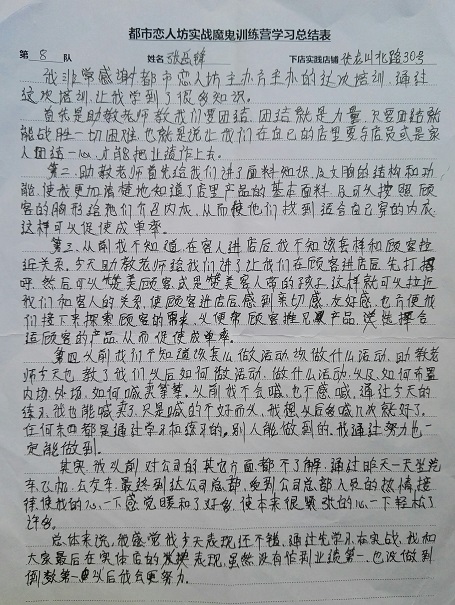 都市恋人坊实战魔鬼训练营学习总结表
第 8 队 姓名 张岳锋 下店实践店铺 龙山北路30号
我非常感谢都市恋人坊主办方举办的这次培训,通过
这次培训,让我学到了很多知识。
首先是助教老师教我们要团结,团结就是力量,只要团结就
能战胜一切困难,也就是说让我们在自己的店里要与店员或是家
人团结一心,才能把业绩作上去。
第二,助教老师首先给我们讲了面料知识,及文胸的结构和功
能,使我更加清楚地知道了店里产品的基本面料,及可以按照顾
客的胸形给她们介绍内衣,从而使他们找到适合自己穿的内衣,
这样可以促使成单率。
第三,从前我不知道,在客人进店后我不知该怎样和顾客拉
近关系,今天助教老师给我们讲了让我们在顾客进店后,先打招
呼,然后可以赞美顾客,或是赞美客人带的孩子,这样就可以拉近
我们和客人的关系,使顾客进店后感到亲切感,友好感,也方便我
们接下来探索顾客的需求,以便帮顾客推兄产品,选择合
适顾客的产品,从而促使成单率。
第四,以前我们不知道该怎么做活动,该做什么活动,助教老
师今天也教了我们以后如何做活动,做什么活动,以及如何布置
内场,外场,如何喊卖等等。以前我不会喊,也不感喊,通过今天的
练习,我也能喊卖了,只是喊的不好而以,我想以后多喊几次就好了。
任何东西都是通过学习和练习的,别人能做到的,我通过努力也一
定能做到。
其实,我以前对公司的其它方面都不了解,通过昨天一天坐完
车,飞机,公交车,最终到达公司总部,受到公司总部人员的热情接
待,使我的心一下感觉暖和了好多,使本来很紧张的心一下轻松了
许多。
总体来说,我感觉我今天表现还不错,通过先学习,在实战,我和
大家最后在实体店的表现,虽然没有作到业绩第一,也没做到
倒数第一,以后我会更努力。